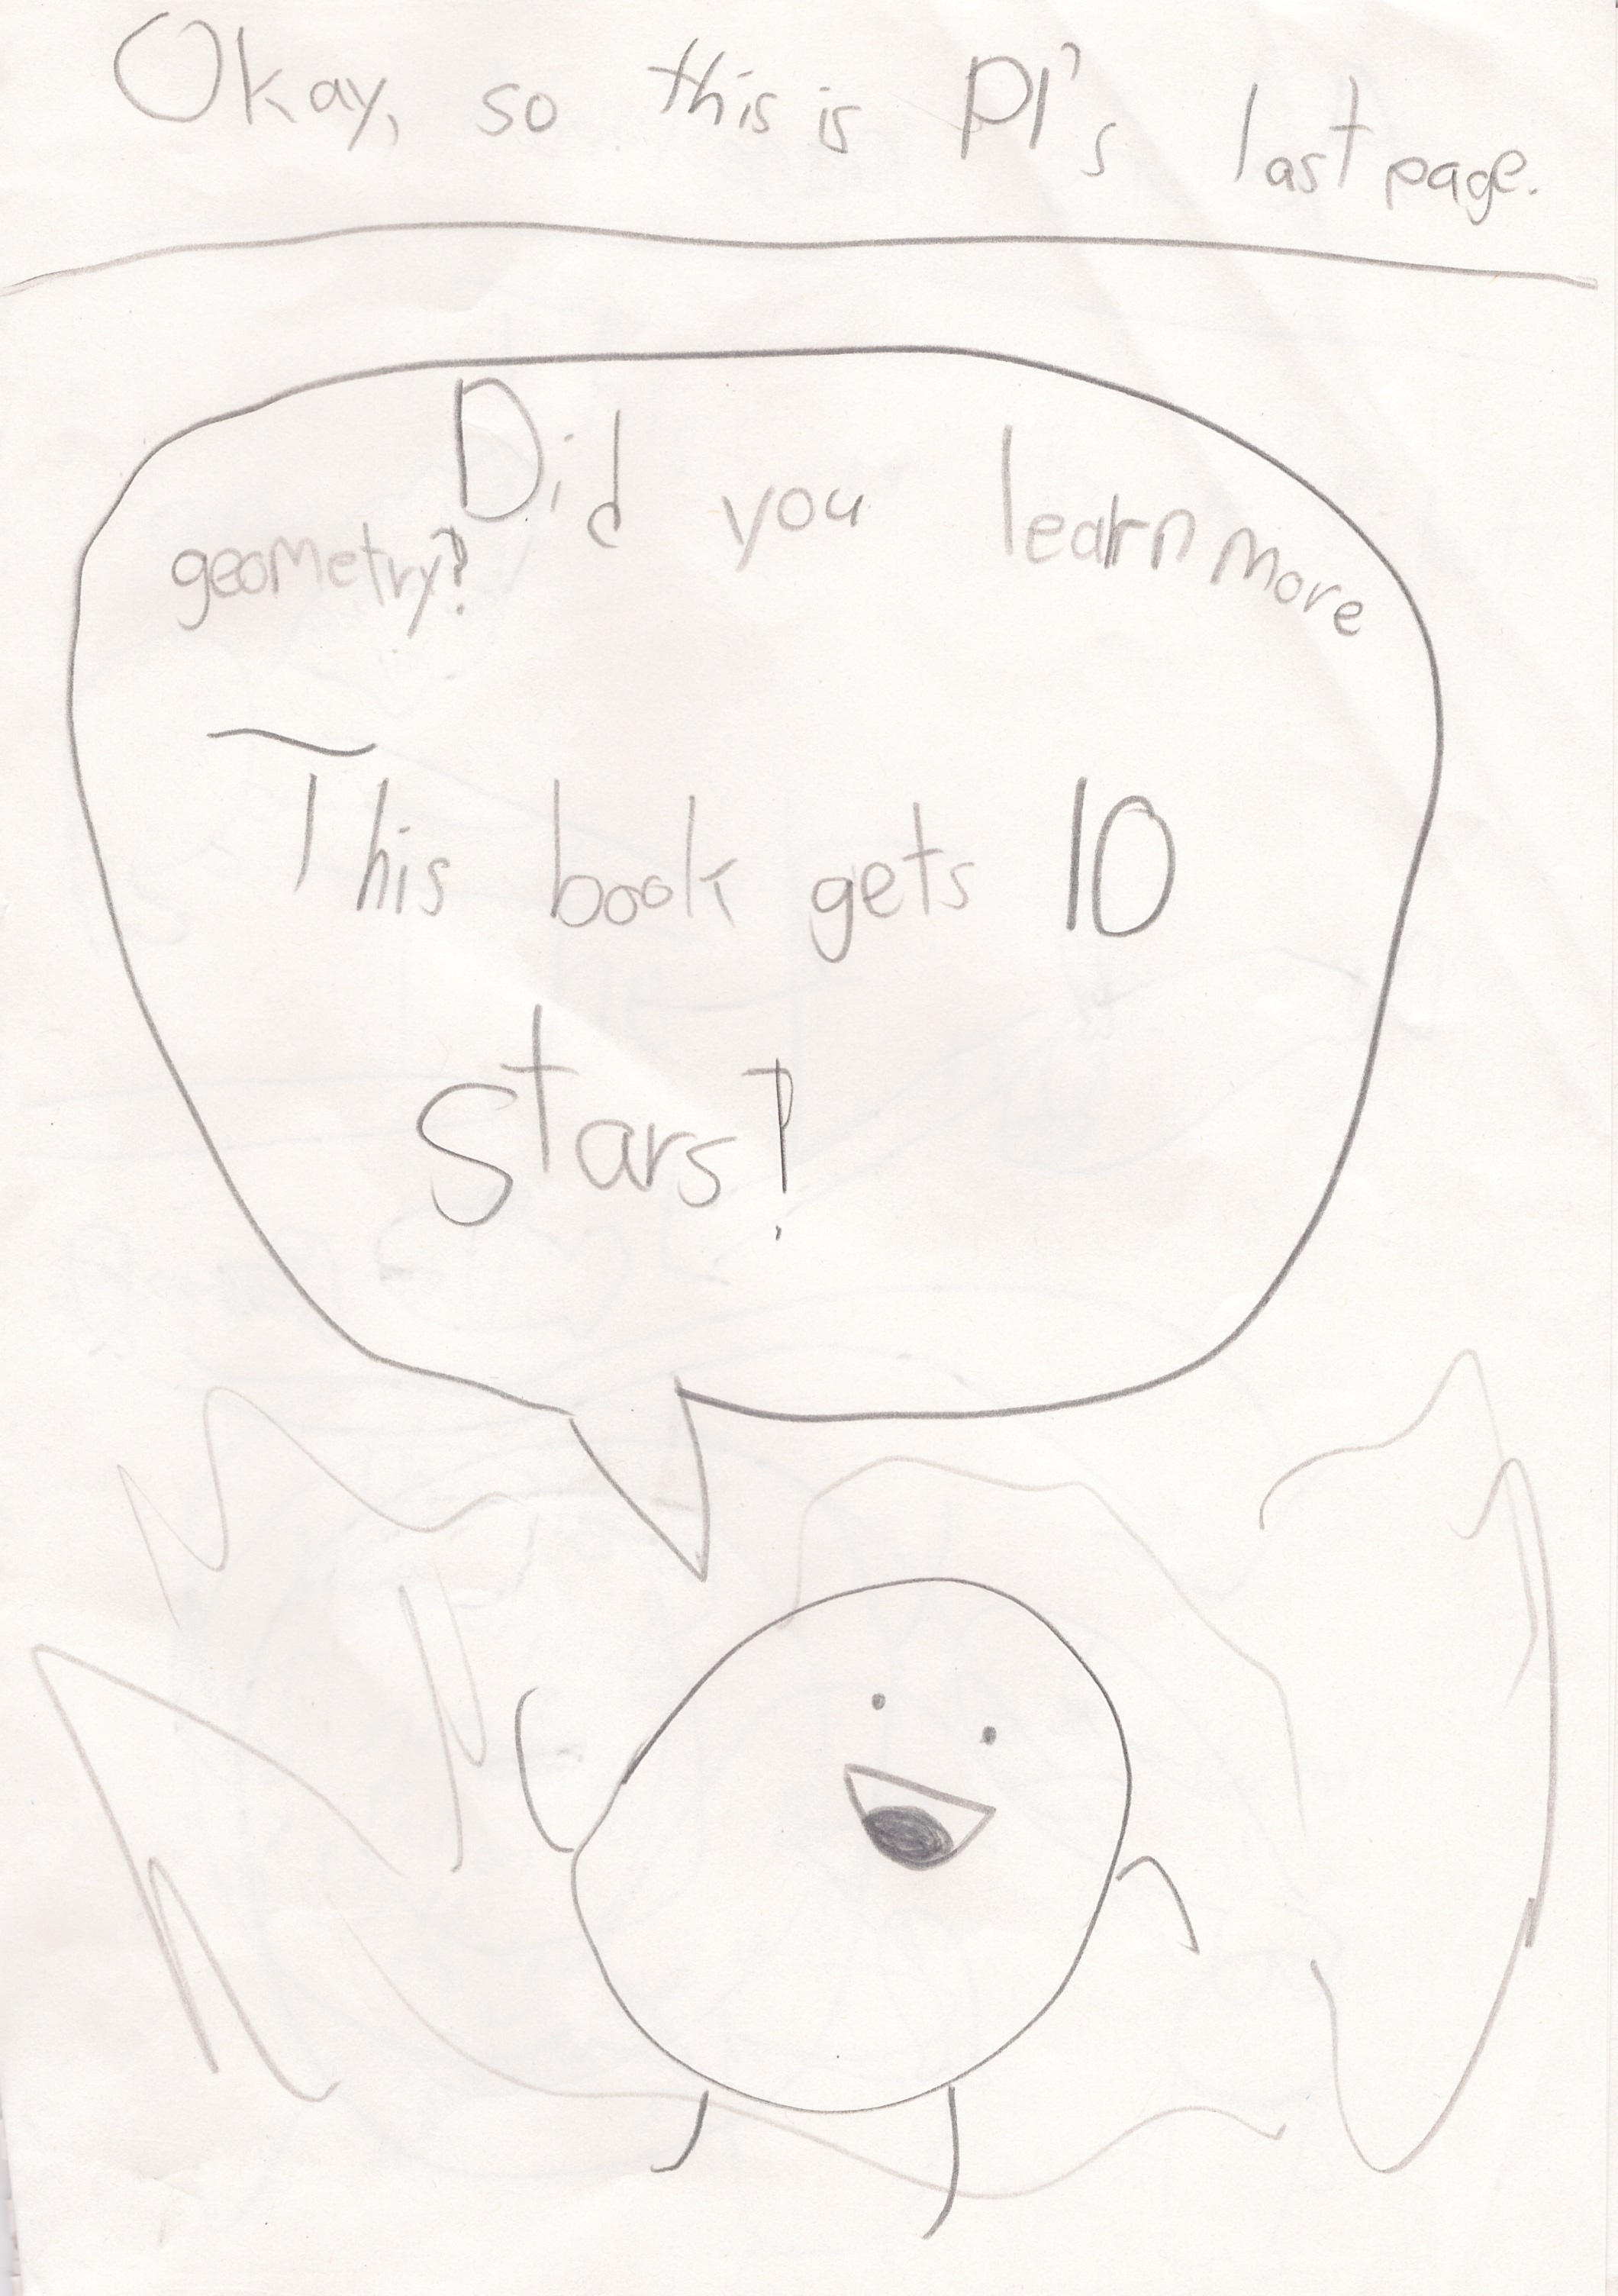 Okay, so this is PI's last page.
Did you learn more
geometry?
This book gets 10
stars?